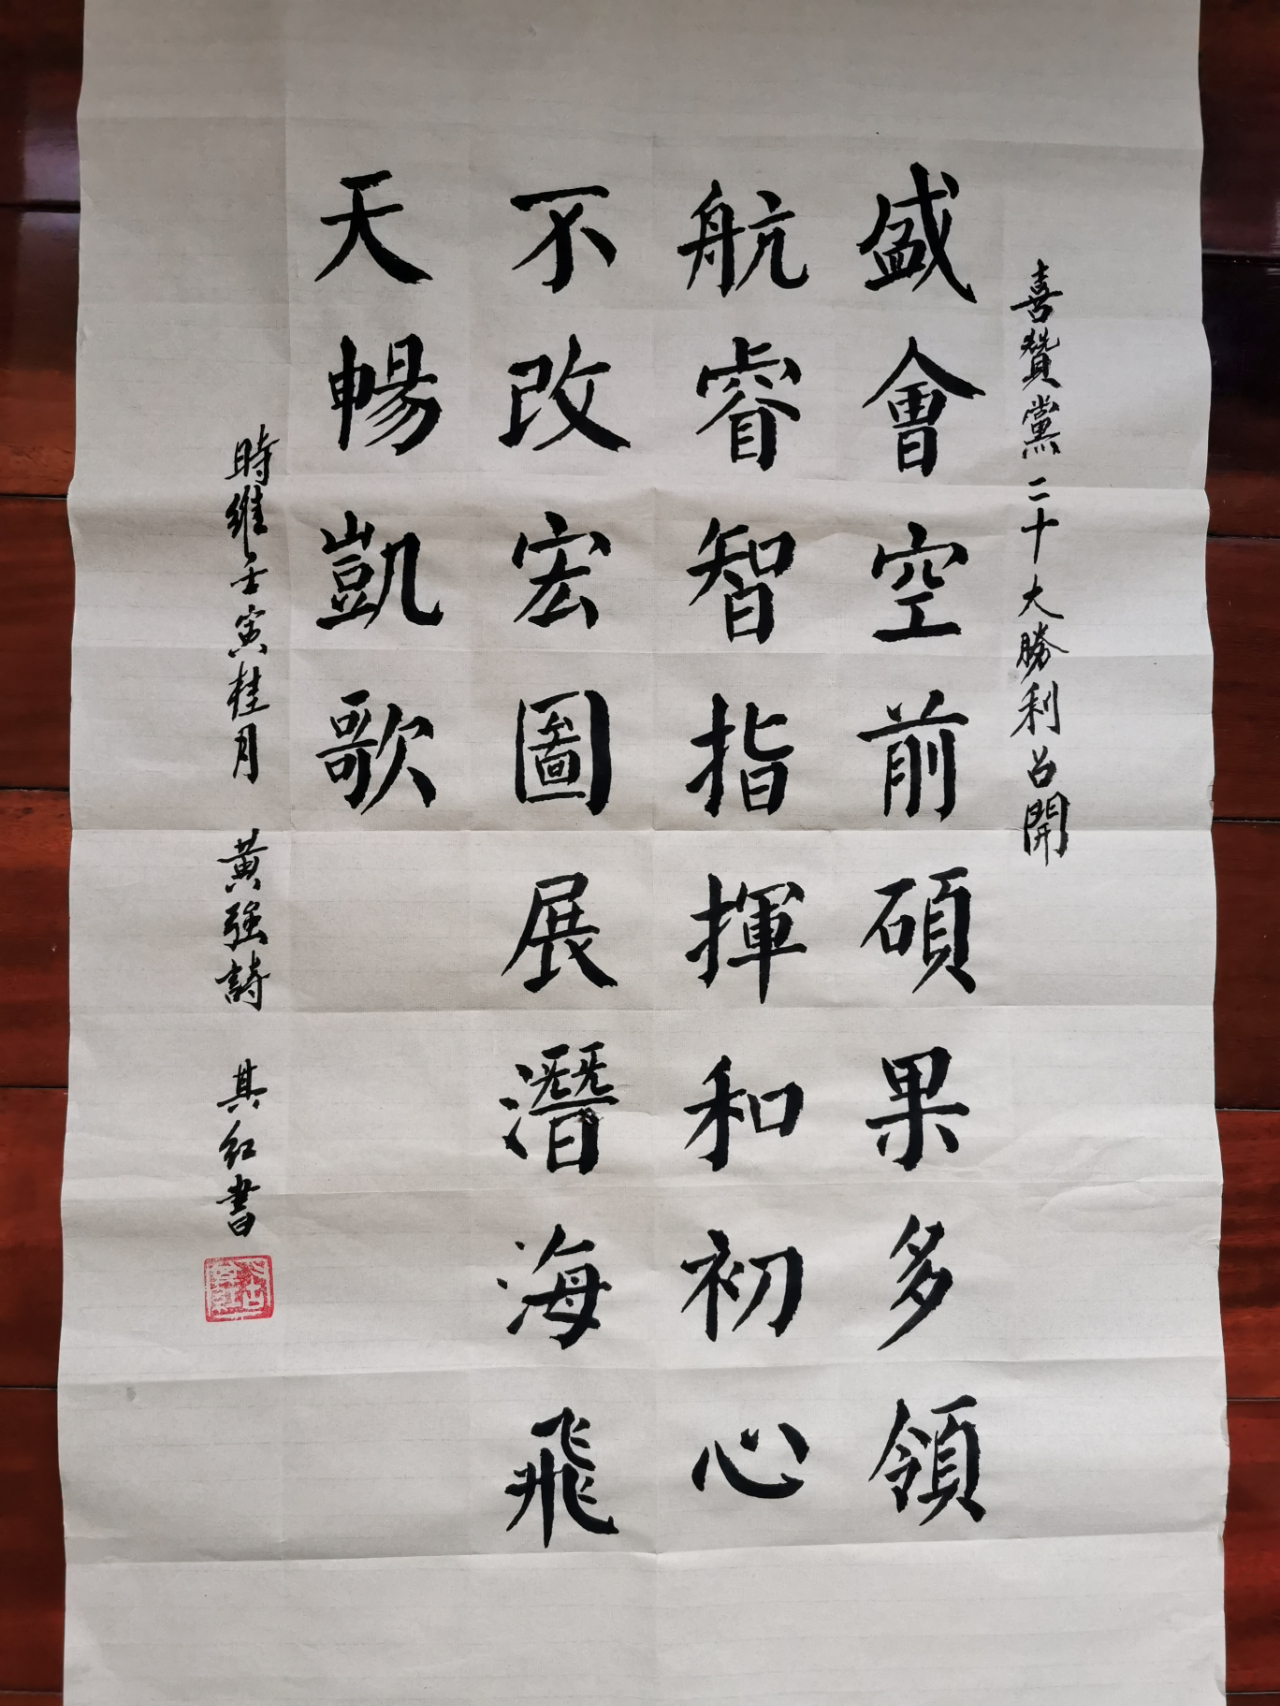 喜贊黨二十大勝利召開
盛會空前碩果多領
航睿智指揮和初心
不改宏圖展潛海飛
天暢凱歌
時維壬寅桂月 黄強詩 其紅書